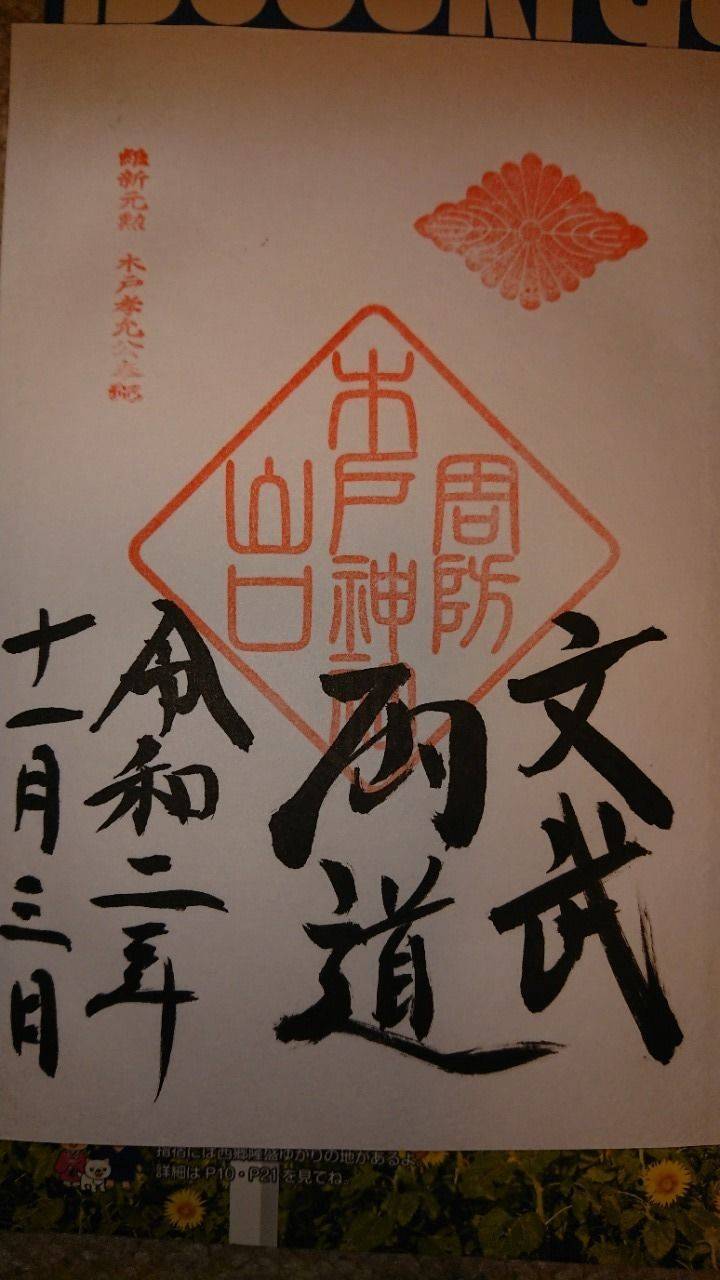 文武
両道
令和二年
十一月三日
周防
木戸神社
山口
維新元勲 木戸孝允公
指宿には西郷隆盛ゆかりの地があるよ
詳細はP10・P21を見てね。